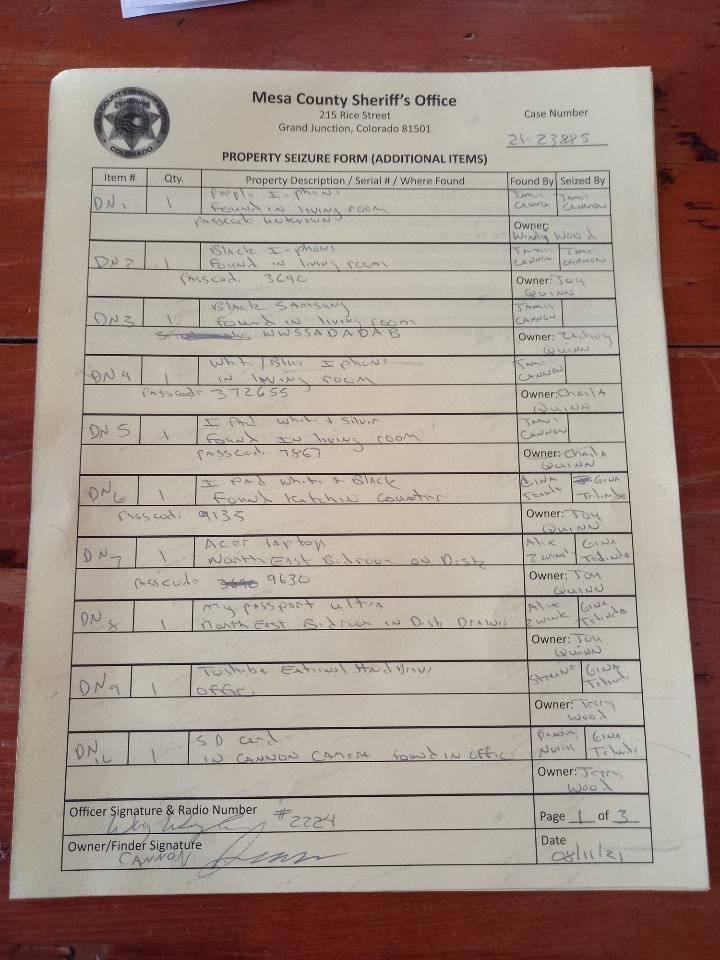 Mesa County Sheriff's Office
215 Rice Street
Grand Junction, Colorado 81501
Case Number
21-23885
PROPERTY SEIZURE FORM (ADDITIONAL ITEMS)
Item # Qty. Property Description / Serial # / Where Found Found By Seized By
DN1 1 I-phone
Found in living room
Passcode unknown
CANNON CANNON
Owner: Wendy Wood
DN2 1 Black I-phone
Found in living room
Passcode 3690
CANNON CANNON
Owner: Joy
QUINN
DN3 1 Black SAMSUNG
Found in living room
WWSSADADAB
CANNON
Owner: Zachery
QUINN
DN4 1 White/Blue Iphone
in living room
Passcode 372655
CANNON
Owner:
QUINN
DN5 1 I PAd White + Silver
Found In living room
Passcode 7867
CANNON
Owner:
QUINN
DN6 1 I PAd White + Black
Found Kitchen Counter
Passcode 9135
GINA
Owner: Joy
QUINN
DN7 1 Acer laptop
North East Bedroom on Desk
Passcode 9630
GINA
Owner: Joy
QUINN
DN8 1 my passport ultra
North East Bedroom in Desk Drawer
GINA
Owner: Joy
QUINN
DN9 1 Toshiba External Hard Drive
office
GINA
Owner: Jerry
Wood
DN10 1 SD card
IN CANNON CAMERA found in office
GINA
Owner: Jerry
Wood
Officer Signature & Radio Number #2224
Page 1 of 3
Owner/Finder Signature
CANNON
Date
08/11/21